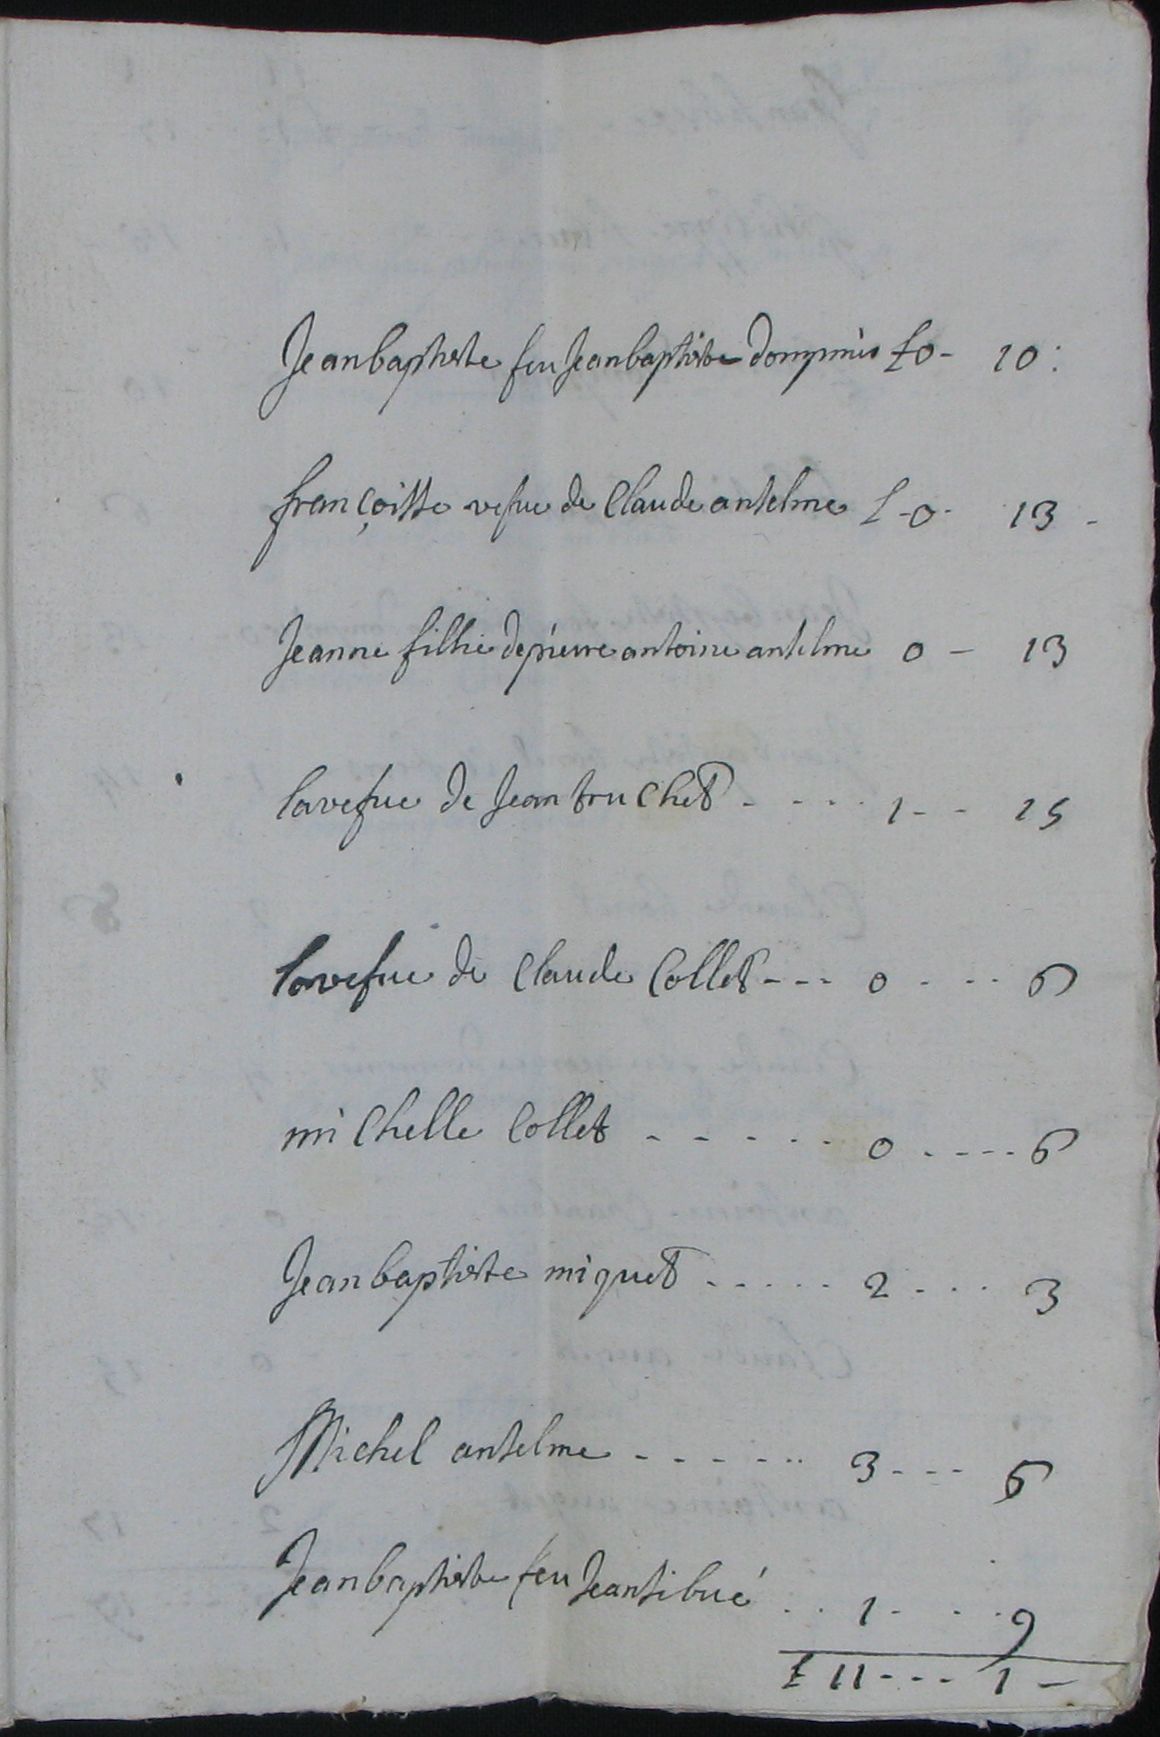 Jean baptiste feu Jean baptiste dompnies £ 0 - 10 :
françoitte vefue de Claude antelme £ - 0 - 13 -
Jeanne fillie de pierre antoine antelme 0 - 13
la vefue de Jean truchet - - - - 1 - - 15
la vefue de Claude Collet - - - 0 - - - 6
michelle Collet - - - - - - 0 - - - - 6
Jean baptiste miquet - - - - - 2 - - - 3
Michel antelme - - - - - - 3 - - - 6
Jean baptiste feu Jean tibué . . 1 - - - 9
£ 11 - - - 1 -